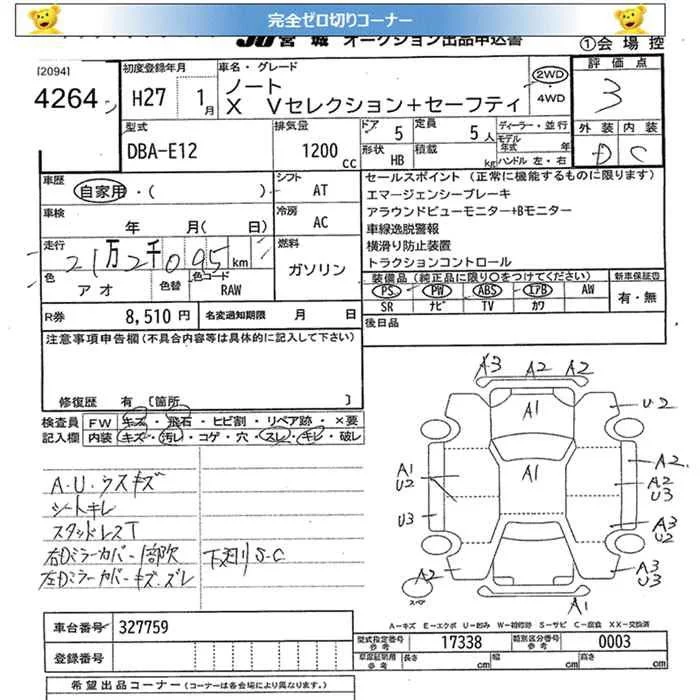 完全ゼロ切りコーナー
JU宮城 オークション出品申込書 ①会場控
[2094]
4264
初度登録年月 H27 1月
車名・グレード ノート
X Vセレクション+セーフティ
2WD・4WD
評価点 3
外装 D 内装 C
型式 DBA-E12
排気量 1200cc
ドア 5
形状 HB
定員 5人
積載 kg
ディーラー・並行
モデル年式 年
ハンドル 左・右
車歴 自家用・( )
シフト AT
車検 年 月( 日)
冷房 AC
走行 21万2千095km
燃料 ガソリン
色 アオ 色替 色コード RAW
R券 8,510円 名変通知期限 月 日
セールスポイント(正常に機能するものに限ります)
エマージェンシーブレーキ
アラウンドビューモニター+Bモニター
車線逸脱警報
横滑り防止装置
トラクションコントロール
装備品(純正品に限り○をつけてください) 新車保証書
PS PW ABS エアB AW 有・無
SR ナビ TV カワ
後日品
注意事項申告欄(不具合内容等は具体的に記入して下さい)
修復歴 有 [箇所 ]
検査員記入欄 FW キズ・飛石・ヒビ割・リペア跡・×要
内装 キズ・汚レ・コゲ・穴・スレ・キレ・破レ
A・U・ウスキズ
シートキレ
スタッドレスT
右Dミラーカバー1部欠 下廻りS・C
左Dミラーカバーキズ・ズレ
A3 A2 A2
A1
U2
A1
A1
U2
A2
A2
U3
U3
A3
U2
A2
A3
U3
A1
スペア
A−キズ E−エクボ U−凹み W−補修跡 S−サビ C−腐食 XX−交換済
車台番号 327759
登録番号
型式指定番号 参考 17338 類別区分番号 参考 0003
車庫証明用 参考 長さ cm 幅 cm 高さ cm
希望出品コーナー(コーナーは各会場により異なります。)